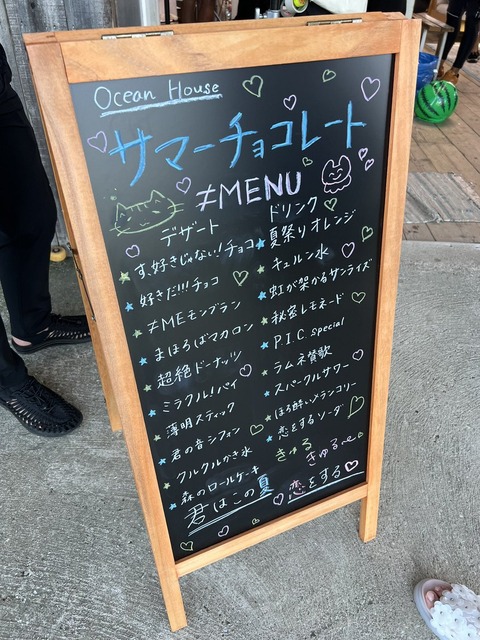 Ocean House
サマーチョコレート
≠MENU
デザート
す、好きじゃない!チョコ
好きだ!!!チョコ
≠MEモンブラン
まほろばマカロン
超絶ドーナッツ
ミラクル!パイ
薄明スティック
君の音シフォン
クルクルかき氷
森のロールケーキ
ドリンク
夏祭りオレンジ
キュルン水
虹が架かるサンライズ
秘密レモネード
P.I.C. special
ラムネ賛歌
スパークルサワー
ほろ酔いメランコリー
恋をするソーダ
きゅる
きゅる~ん
君はこの夏 恋をする